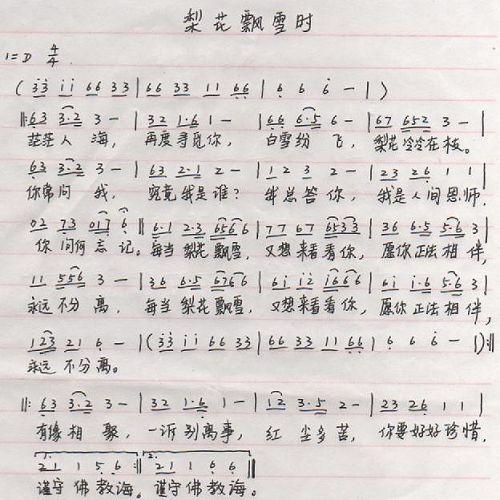 梨花飘雪时
1=D 4/4
( 33 11 66 33 | 66 33 11 66 | 6 6 6 - | )
‖: 63 3·2 3 - | 32 1·6 1 - | 66 6·5 6 - | 67 652 3 - |
茫茫人海, 再度寻觅你, 白雪纷飞, 梨花冷冷在枝。
63 3·2 3 - | 63 2·1 2 - | 1 2 3 2 - | 23 26 1 1 |
你常问我, 究竟我是谁? 我总答你, 我是人间恩师.
02 73 017 6 ‖ 6·1 2·3 6566 | 77 67 6533 | 36 6·5 5·6 3 |
你问何忘记。每当梨花飘雪, 又想来看看你, 愿你正法相伴,
11 556 3 - | 36 6·5 6766 | 61 12 1666 | 61 1·6 5·6 3 |
永远不分离, 每当梨花飘雪, 又想来看看你, 愿你正法相伴,
123 21 6 - | (33 11 66 33 | 66 33 11 66 | 6 6 6 - | ) :‖
永远不分离。
‖: 63 3·2 3 - | 32 1·6 1 - | 12 3·5 2 - | 23 26 1 1 |
有缘相聚, 一诉别离事, 红尘多苦, 你要好好珍惜,
1. 21 1 5 6 :‖ 2. 21 1 6 6 ‖
谨守佛教海。谨守佛教海。